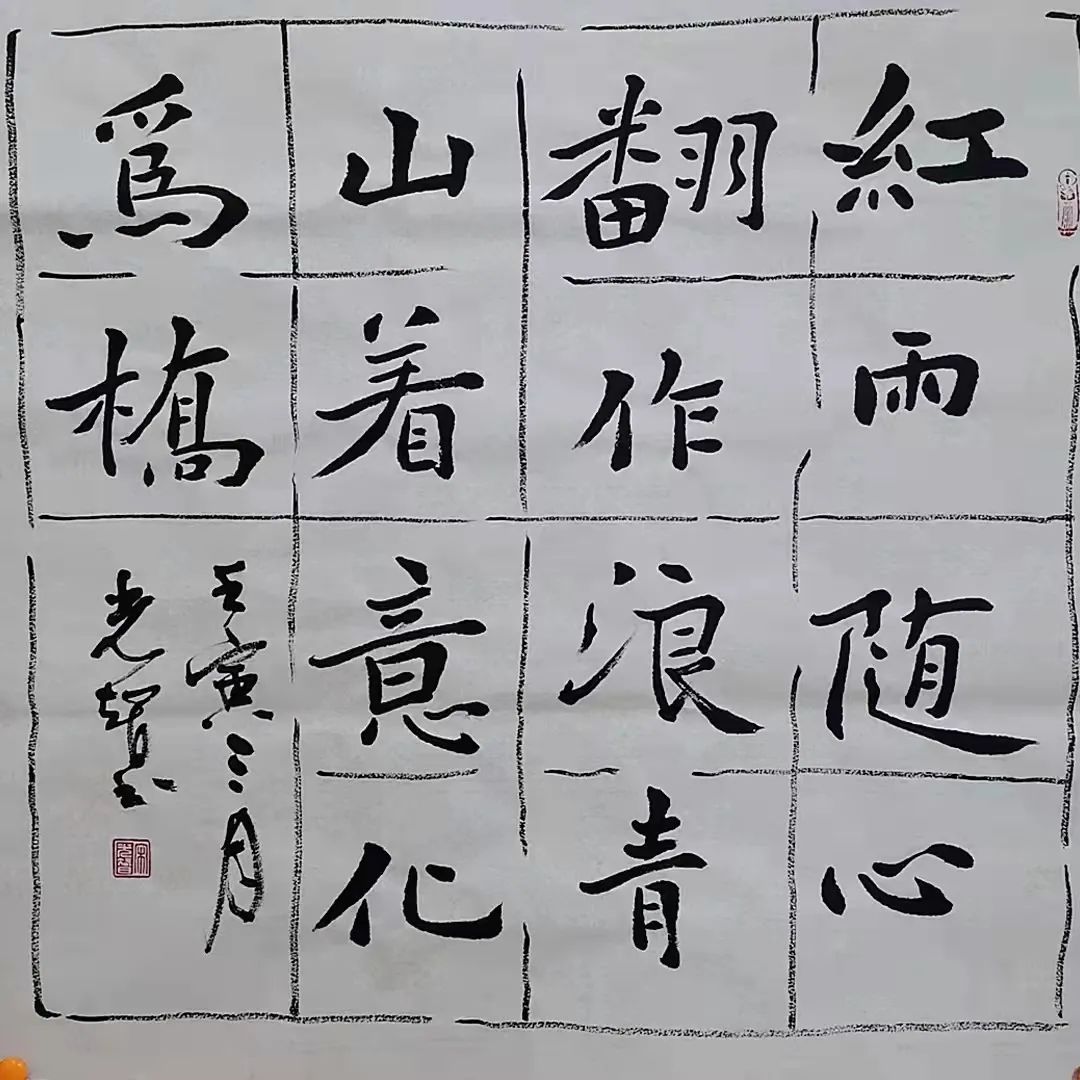 紅雨随心
翻作浪青
山着意化
爲橋
壬寅三月
光